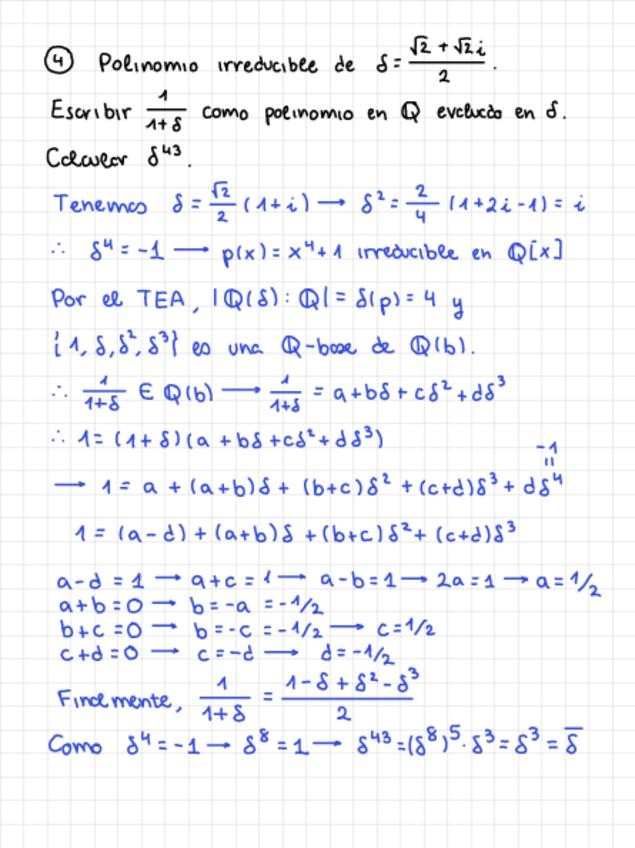 ④ Polinomio irreducible de δ = (√2 + √2 i)/2 .
Escribir 1/(1+δ) como polinomio en ℚ evaluado en δ.
Calcular δ^43.
Tenemos δ = √2/2 (1+i) → δ² = 2/4 (1+2i-1) = i
∴ δ⁴ = -1 → p(x) = x⁴+1 irreducible en ℚ[x]
Por el TEA, |ℚ(δ) : ℚ| = δ(p) = 4 y
{1, δ, δ², δ³} es una ℚ-base de ℚ(b).
∴ 1/(1+δ) ∈ ℚ(b) → 1/(1+δ) = a+bδ+cδ²+dδ³
∴ 1 = (1+δ)(a+bδ+cδ²+dδ³)
-1
=
→ 1 = a + (a+b)δ + (b+c)δ² + (c+d)δ³ + dδ⁴
1 = (a-d) + (a+b)δ + (b+c)δ² + (c+d)δ³
a-d = 1 → a+c = 1 → a-b=1 → 2a=1 → a=1/2
a+b=0 → b=-a = -1/2
b+c=0 → b=-c = -1/2 → c=1/2
c+d=0 → c=-d → d=-1/2
Finalmente, 1/(1+δ) = (1-δ+δ²-δ³)/2
Como δ⁴=-1 → δ⁸=1 → δ^43=(δ⁸)⁵·δ³=δ³=δ̅